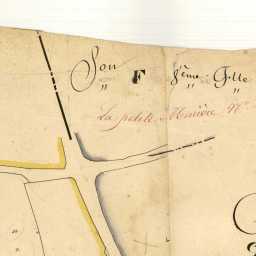 Son F 8ème Flle
La petite Minière N°